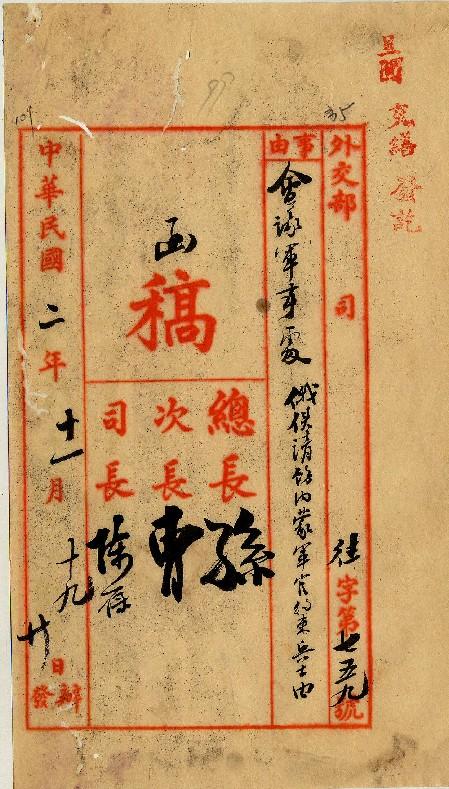 呈閱
發訖
35
外交部 司 往字第七五九號
事由
會議軍事處 俄使請飭內蒙軍官約束兵士由
函
稿
總長 孫
次長 曹
司長 陳
中華民國二年十一月十九 廿日辦發
109